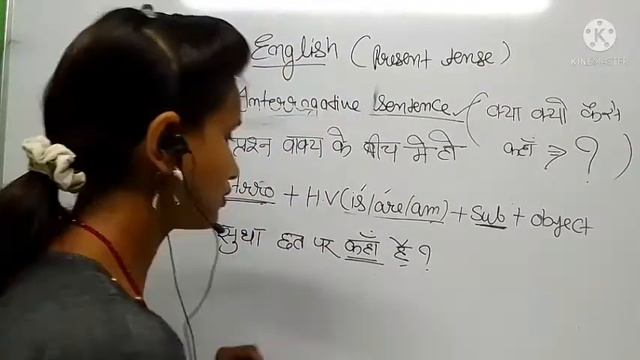 English (Present tense)
Interrogative Sentence (क्या क्यों कैसे
प्रश्न वाक्य के बीच में हो कहाँ ⇒ ? )
+ HV (is/are/am) + Sub + object
सुधा छत पर कहाँ है ?
KINEMASTER